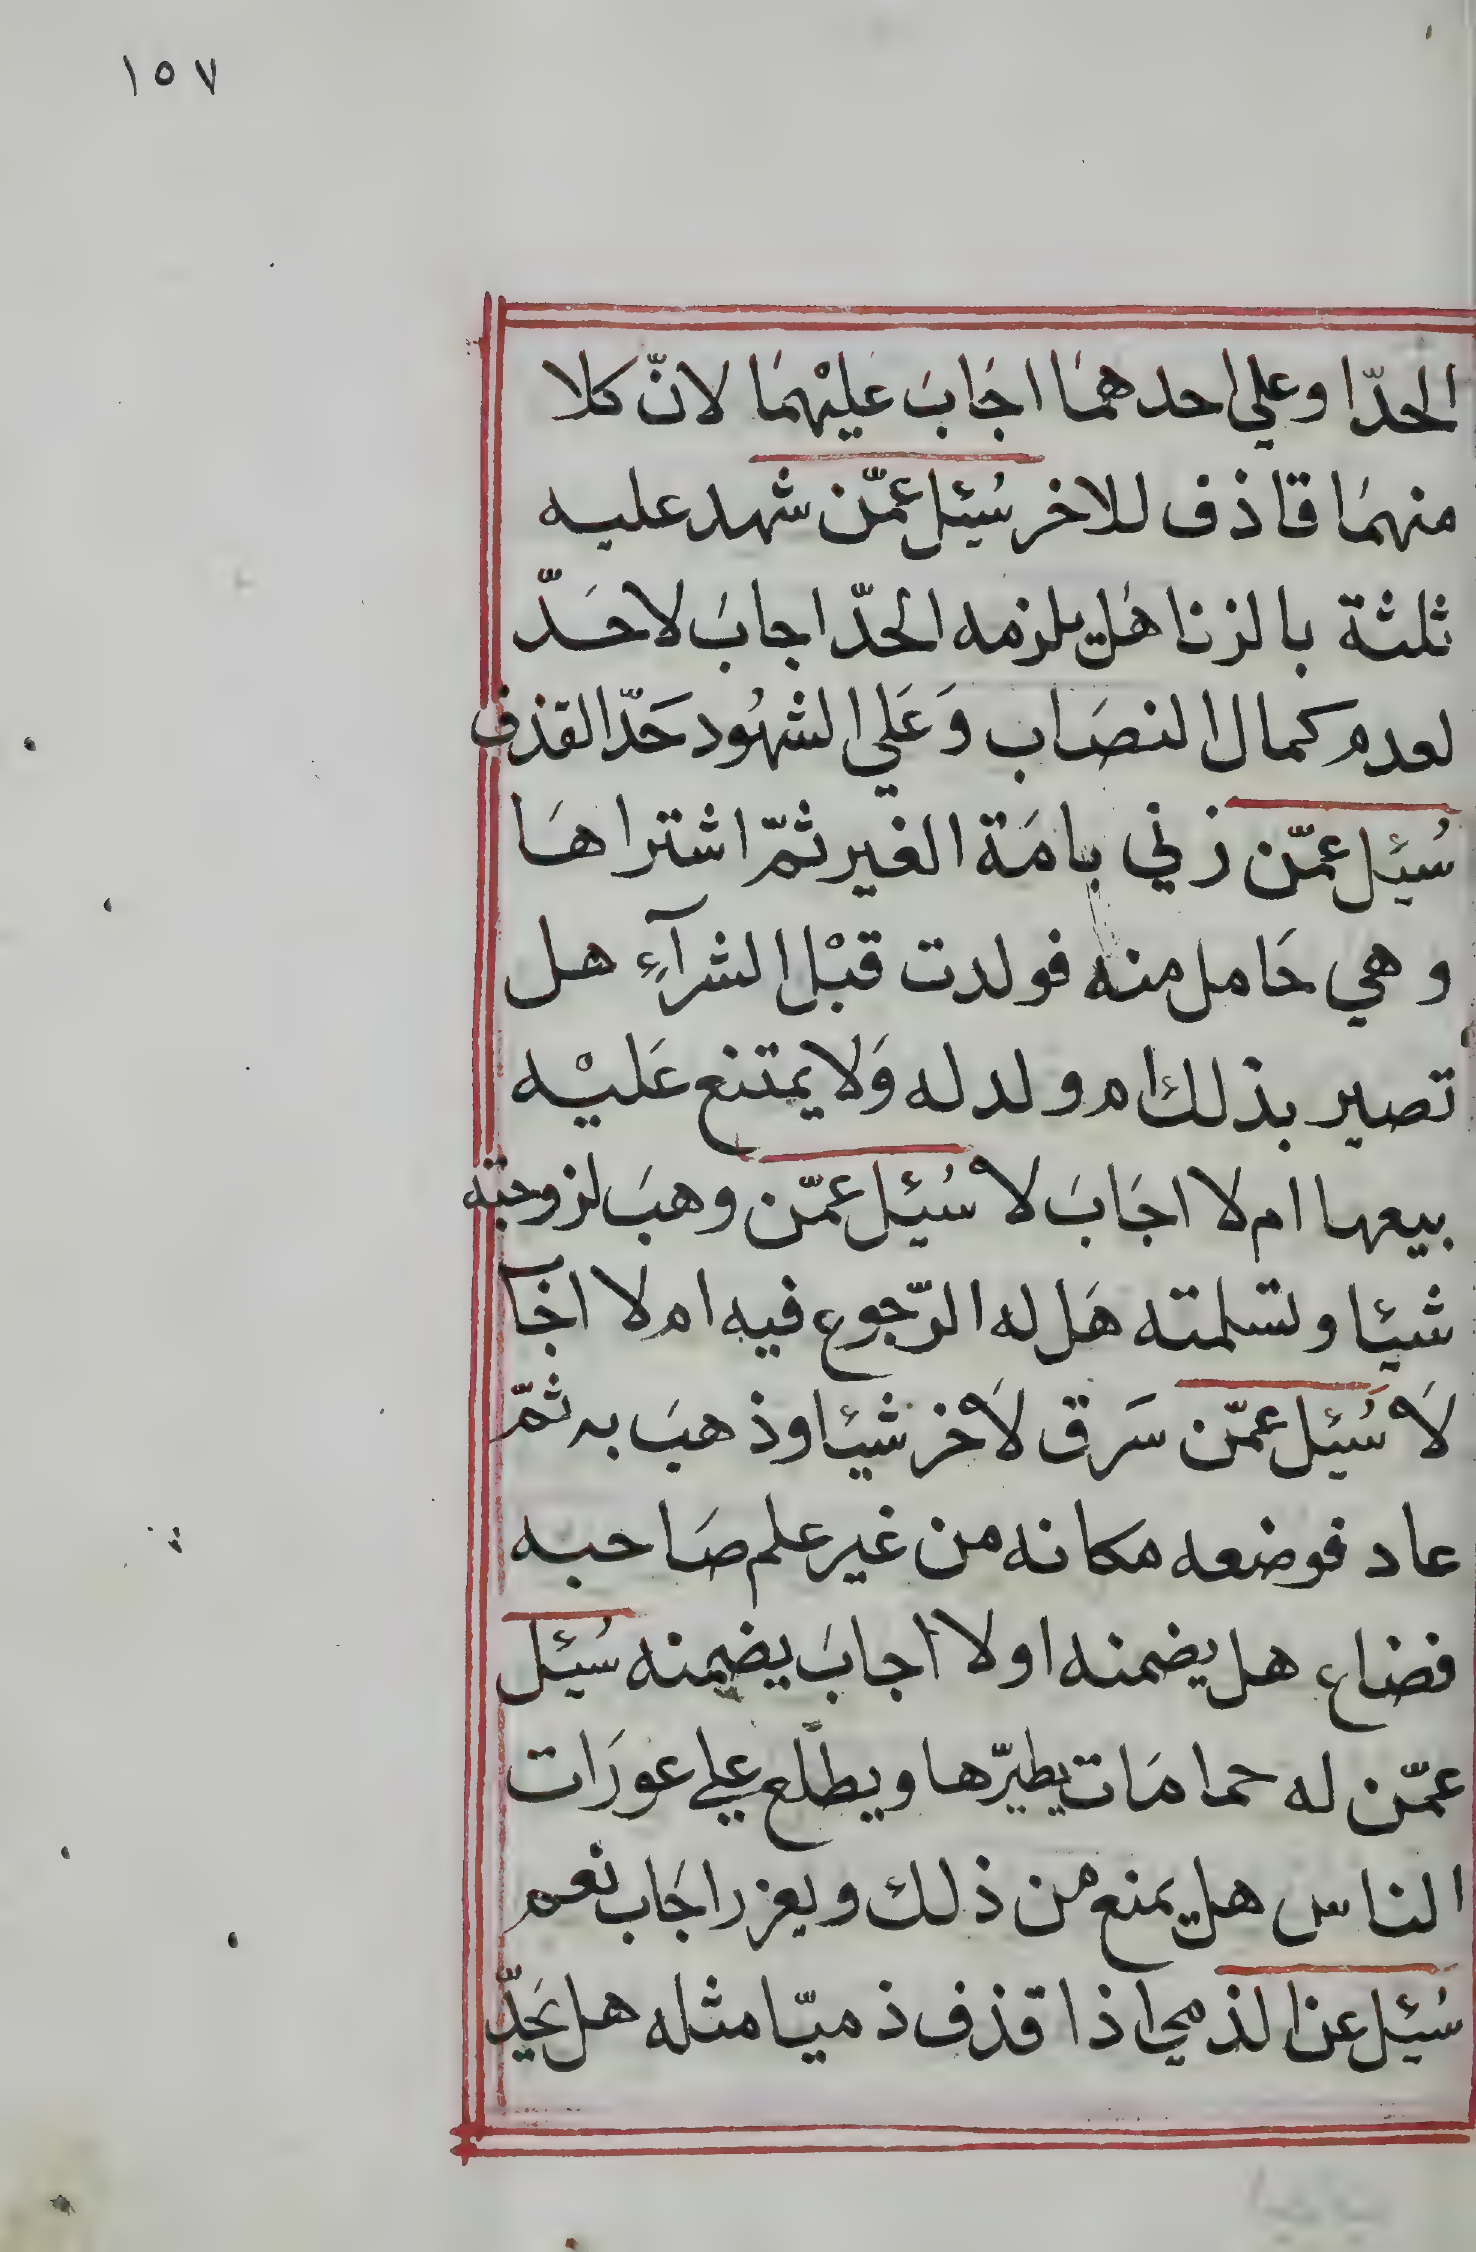 ١٥٧
الحدّ او علي احدهما اجَابَ عَليْهمَا لانّ كلا
منهمَا قاذف للاخر سُئِل عمّن شهد عليه
ثلثة بالزنا هَل يلزمه الحدّ اجابَ لاحَدّ
لعدم كمال النصَاب وَعَلي الشهُود حَدّ القذف
سُئِل عمّن زني بامَة الغير ثمّ اشتراهَا
وهي حَامل منه فولدت قبْل الشرآءِ هل
تصير بذلك ام ولد له وَلا يمتنع عَليْه
بيعها ام لا اجَابَ لا سُئِل عمّن وهبَ لزوجته
شيئا وتسلمته هَل له الرّجوع فيه ام لا اجَاب
لَا سُئِل عمّن سَرق لاخر شيئا وذهبَ به ثمّ
عاد فوضعه مكانه من غير علم صَاحبه
فضاع هل يضمنه اولا اجابَ يضمنه سُئِل
عمّن له حمامَات يطيّرها ويطلّع علي عورَات
الناس هل يمنع من ذلك ويعزر اجَاب نعم
سُئِل عن الذمي اذا قذف ذميّا مثله هل يحَدّ